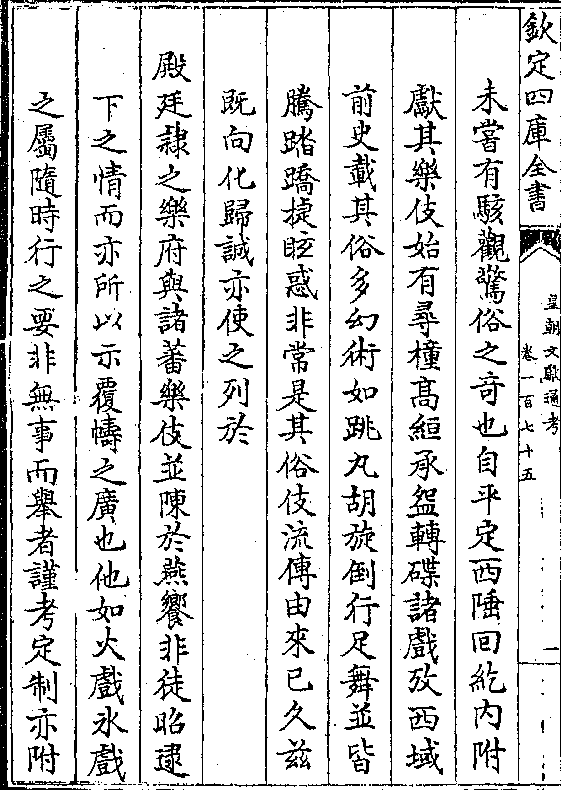 欽定四庫全書
皇朝文獻通考
卷一百七十五
一
未嘗有駭觀驚俗之奇也自平定西陲回紇内附
獻其樂伎始有尋橦高絙承盌轉碟諸戲攷西域
前史載其俗多幻術如跳丸胡旋倒行足舞並皆
騰踏蹻捷眩惑非常是其俗伎流傳由來已久兹
既向化歸誠亦使之列於
殿廷隷之樂府與諸蕃樂伎並陳於燕饗非徒昭逮
下之情而亦所以示覆幬之廣也他如火戲氷戲
之屬隨時行之要非無事而舉者謹考定制亦附